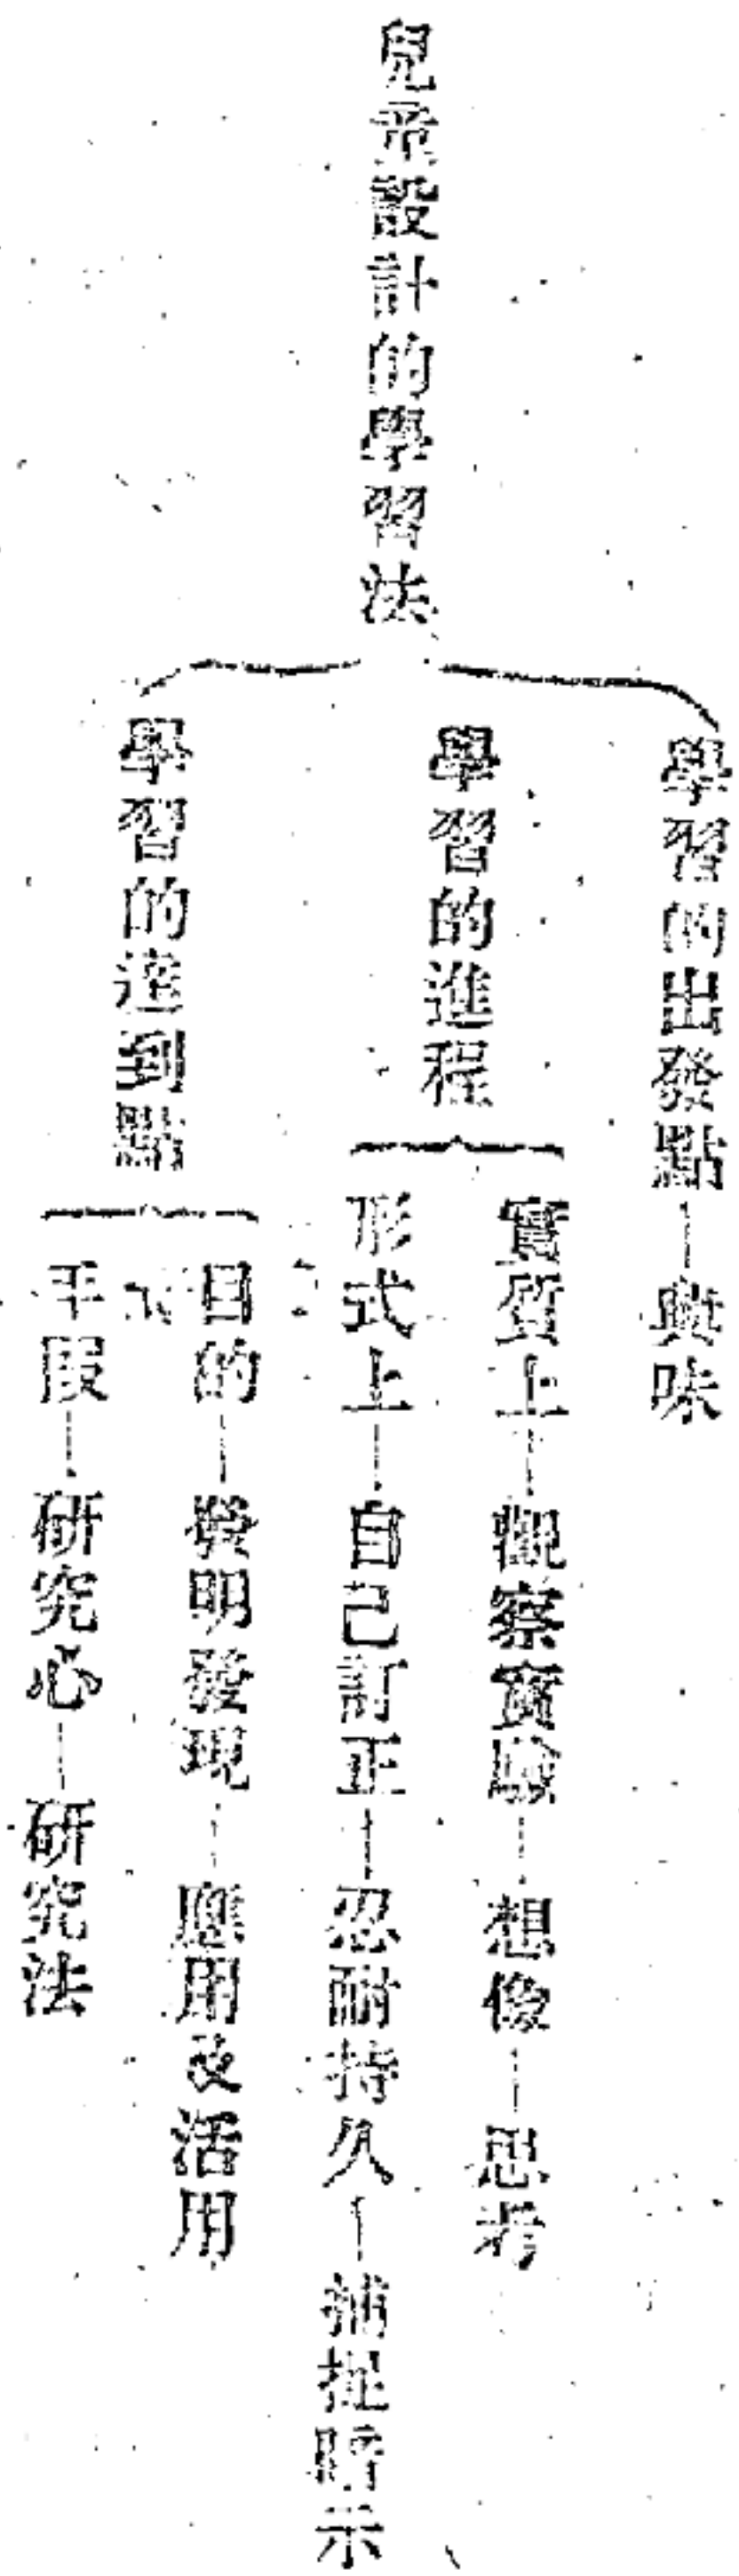 兒童設計的學習法
學習的出發點—興味
學習的進程
實質上—觀察實驗—想像—思考
形式上—自己訂正—忍耐持久—捕捉暗示
學習的達到點
目的—發明發現—應用及活用
手段—研究心—研究法